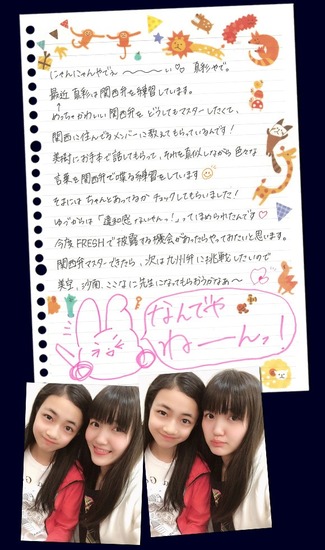 にゃんにゃんやでぇ 〜〜〜〜い♡♡ 真彩やで。
最近 真彩は関西弁を練習しています。
めっちゃかわいい関西弁を どうしてもマスターしたくて、
関西に住んでるメンバーに教えてもらっているんです!
美樹にお手本で話してもらって、それを真似しながら色々な
言葉を関西弁で喋る練習をしています
そまにはちゃんとあってるか チェックしてもらいました!
ゆづからは「違和感ないやんっ!」ってほめられたんです♡
今度FRESHで披露する機会があったらやっておきたいと思います。
関西弁マスターできたら、次は九州弁にお挑戦したいので
美空、沙南、ここなに先生になってもらおうかなあ〜
なんでや
ねーんっ!